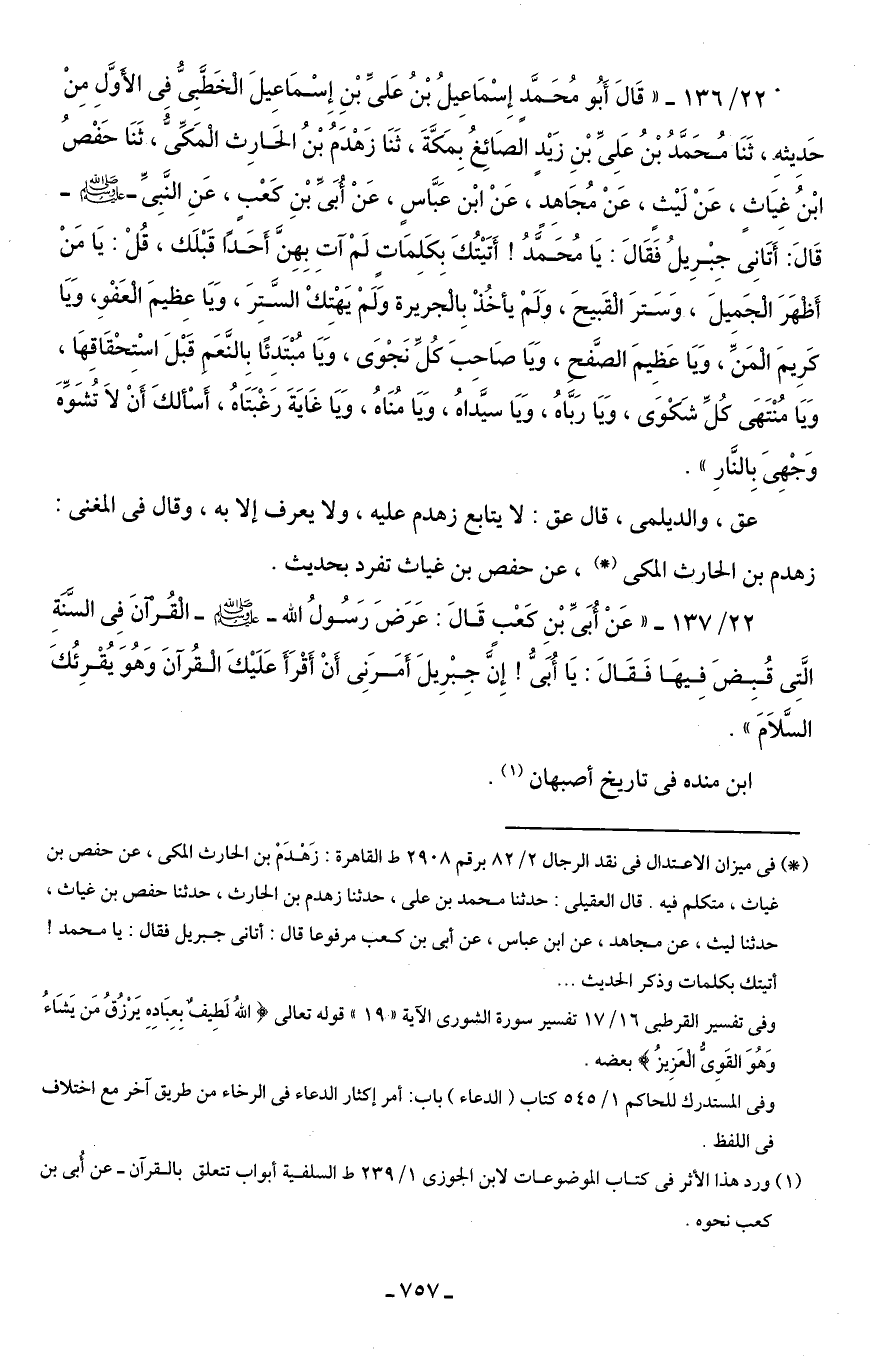 ٢٢/ ١٣٦ ـ « قَالَ أَبُو مُحَمَّدٍ إِسْمَاعِيلُ بْنُ عَلىِّ بْنِ إِسْمَاعِيلَ الْخَطَّبِىُّ فِى الأَوَّلِ مِنْ
حَدِيثِهِ ، ثَنَا مُحَمَّدُ بْنُ عَلِىِّ بْنِ زَيْدٍ الصَائِغُ بِمَكَّةَ ، ثَنَا زَهْدَمُ بْنُ الحَارِثِ المَكِىُّ ، ثَنَا حَفْصُ
ابْنُ غِيَاثٍ ، عَنْ لَيْثٍ ، عَنْ مُجَاهِدٍ ، عَنْ ابْنِ عَبَّاسٍ ، عَنْ أُبَىِّ بْنِ كَعْبٍ ، عَنِ النَّبِىِّ ـ ﷺ ـ
قَالَ: أَتَانِى جِبْرِيلُ فَقَالَ : يَا مُحَمَّدُ ! أَتَيْتُكَ بِكَلِمَاتٍ لَمْ آتِ بِهِنَّ أَحَدًا قَبْلَكَ ، قُلْ : يا مَنْ
أَظْهَرَ الْجَمِيلَ ، وَسَتَرَ الْقَبِيحَ ، ولَمْ يأخُذْ بِالْجَرِيرَةِ وَلَمْ يَهْتِكْ السَّتِرَ ، وَيَا عظِيمَ العَفْوِ، وَيَا
كَرِيمَ الْمَنِّ ، وَيَا عَظِيمَ الصَّفْحِ ، وَيَا صَاحِبَ كُلِّ نَجْوَى ، وَيَا مُبْتَدِئًا بِالنَّعَمِ قَبْلَ اسْتِحْقَاقِهَا ،
وَيَا مُنْتَهَى كُلِّ شَكْوَى ، وَيَا رَبَّاهُ ، وَيَا سيَّداهُ ، وَيَا مُنَاهُ ، وَيَا غَايَةَ رَغْبَتَاهُ ، أَسْأَلكَ أَنْ لاَ تُشَوِّهَ
وَجْهِىَ بِالنَّارِ » .
عق ، والديلمى ، قال عق : لا يتابع زهدم عليه ، ولا يعرف إلا به ، وقال فى المغنى :
زهدم بن الحارث المكى (*) ، عن حفص بن غياث تفرد بحديث .
٢٢/ ١٣٧ ـ « عَنْ أُبَىِّ بْنِ كَعْبٍ قَالَ : عَرَضَ رَسُولُ اللهِ ـ ﷺ ـ الْقُرْآنَ فِى السَّنَةِ
الَّتِى قُبِضَ فِيهَا فَقَالَ : يَا أُبَىُّ ! إِنَّ جِبْرِيلَ أَمَرَنِى أَنْ أَقْرَأَ عَلَيْكَ الْقُرآنَ وَهُوَ يُقْرِئُكَ
السَّلاَمَ » .
ابن منده فى تاريخ أصبهان (١) .
(*) فى ميزان الاعتدال فى نقد الرجال ٢/ ٨٢ برقم ٢٩٠٨ ط القاهرة : زَهْدَمْ بن الحارث المكى ، عن حفص بن
غياث ، متكلم فيه . قال العقيلى : حدثنا محمد بن على ، حدثنا زهدم بن الحارث ، حدثنا حفص بن غياث ،
حدثنا ليث ، عن مجاهد ، عن ابن عباس ، عن أبى بن كعب مرفوعا قال : أتانى جبريل فقال : يا محمد !
أتيتك بكلمات وذكر الحديث ...
وفى تفسير القرطبى ١٦/ ١٧ تفسير سورة الشورى الآية « ١٩ » قوله تعالى ﴿ اللهُ لَطِيفٌ بِعِبَادِهِ يَرْزُقُ مَن يَشَاءُ
وَهُوَ القَوِىُّ الْعَزِيزُ ﴾ بعضه .
وفى المستدرك للحاكم ١/ ٥٤٥ كتاب ( الدعاء ) باب: أمر إكثار الدعاء فى الرخاء من طريق آخر مع اختلاف
فى اللفظ .
(١) ورد هذا الأثر فى كتاب الموضوعات لابن الجوزى ١/ ٢٣٩ ط السلفية أبواب تتعلق بالقرآن ـ عن أُبى بن
كعب نحوه .
ـ ٧٥٧ ـ